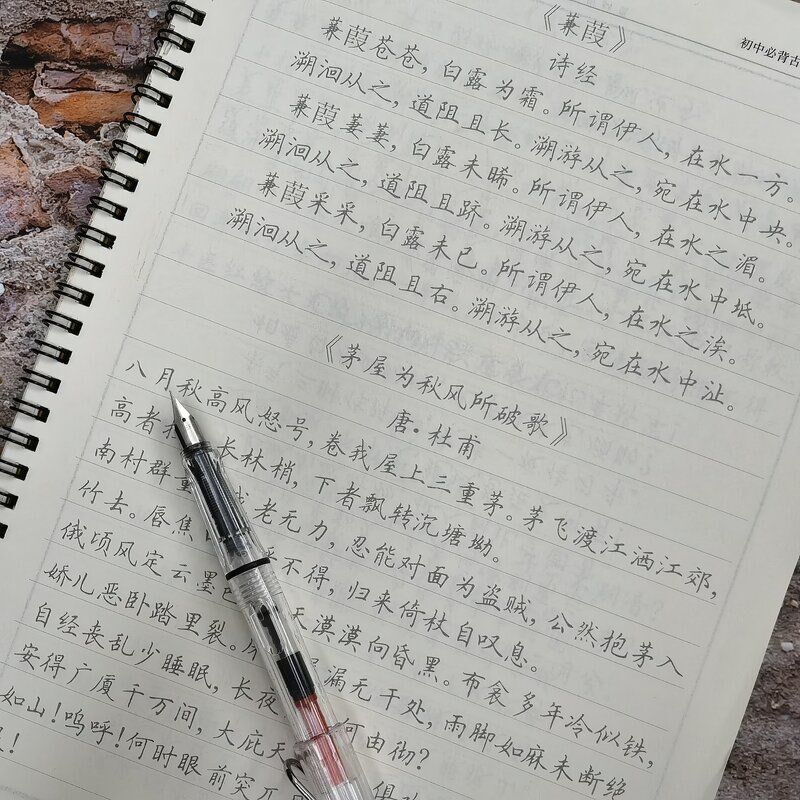 初中必背古
《蒹葭》
诗经
蒹葭苍苍，白露为霜。所谓伊人，在水一方。
溯洄从之，道阻且长。溯游从之，宛在水中央。
蒹葭萋萋，白露未晞。所谓伊人，在水之湄。
溯洄从之，道阻且跻。溯游从之，宛在水中坻。
蒹葭采采，白露未已。所谓伊人，在水之涘。
溯洄从之，道阻且右。溯游从之，宛在水中沚。
《茅屋为秋风所破歌》
唐·杜甫
八月秋高风怒号，卷我屋上三重茅。茅飞渡江洒江郊，
高者 长林梢，下者飘转沉塘坳。
南村群童 老无力，忍能对面为盗贼，公然抱茅入
竹去。唇焦 不得，归来倚杖自叹息。
俄顷风定云墨 天漠漠向昏黑。布衾多年冷似铁，
娇儿恶卧踏里裂。 漏无干处，雨脚如麻未断绝
自经丧乱少睡眠，长夜 何由彻？
安得广厦千万间，大庇天 俱
如山！呜呼！何时眼前突兀
！